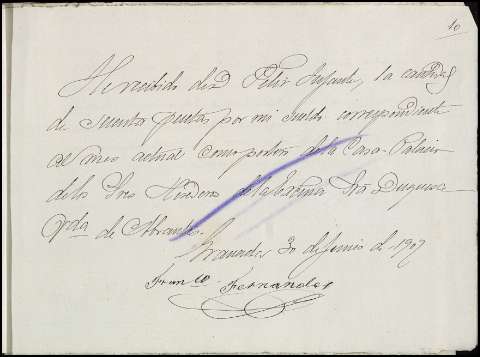 10
He recibido de D. Felix Infante, la cantidad
de sesenta pesetas por mi sueldo correspondiente
al mes actual como portero de la Casa-Palacio
de los Sres Herederos de la Exctma Sra Duquesa
Vda de Abrantes.
Granada 30 de Junio de 1907
Franco Fernandes